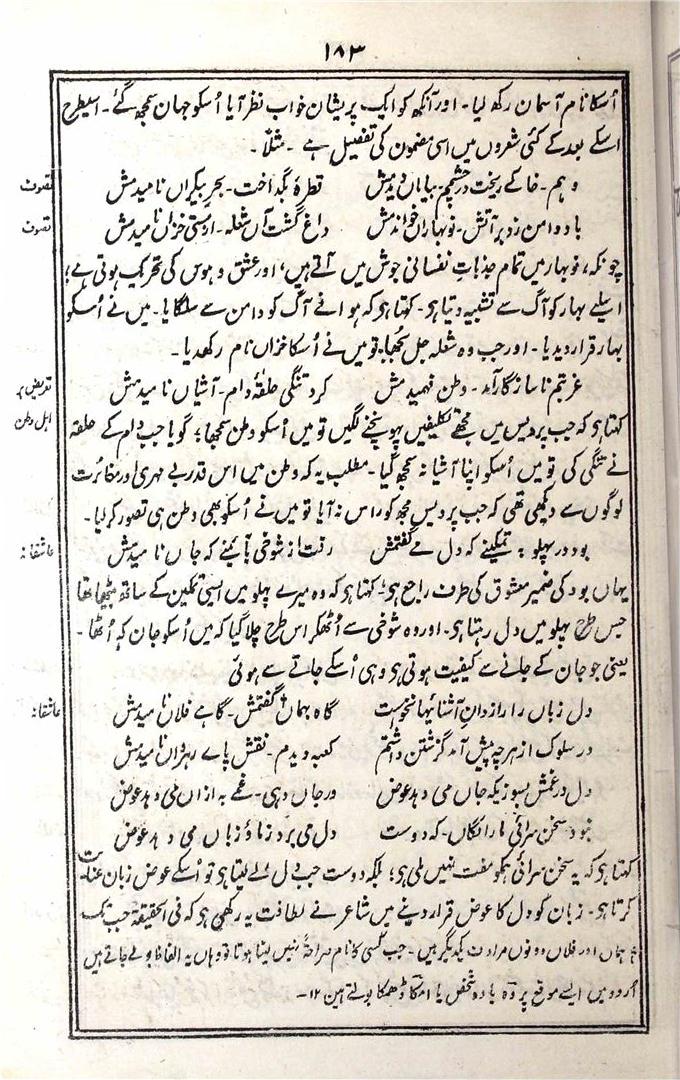 ۱۸۳
اُسکا نام آسمان رکھ لیا۔ اور آنکھ کو ایک پریشان خواب نظر آیا اُسکو جہان سمجھ گئے۔ اسیطرح
اسکے بعد کے کئی شعروں میں اسی مضمون کی تفصیل ہے ۔ مثلًا۔
تصوف
وہم۔ خاکے ریخت در چشمم۔ بیاباں دیدمش
قطرۂ بگداخت۔ بحرِ بیکراں نامیدمش
تصوف
باد دامن زد بر آتش۔ نوبہاراں خواندمش
داغ گشت آں شعلہ۔ از مستی خزاں نامیدمش
چونکہ، نوبہار میں تمام جذباتِ نفسانی جوش میں آتے ہیں، اور عشق و ہوس کی تحریک ہوتی ہے؛
اسیلیے بہار کو آگ سے تشبیہ دیتا ہو۔ کہتا ہو کہ ہوا نے آگ کو دامن سے سلگایا۔ میں نے اُسکو
بہار قرار دیدیا۔ اور جب وہ شعلہ جل بجھا، تو میں نے اُسکا خزاں نام رکھدیا۔
تعریض بر
اہل وطن
غربتم ناسازگار آمد۔ وطن فہمیدمش
کرد تنگی حلقۂ دام۔ آشیاں نامیدمش
کہتا ہو کہ جب پردیس میں مجھے تکلیفیں پہونچنے لگیں تو میں اُسکو وطن سمجھا؛ گویا جب دام کے حلقہ
نے تنگی کی تو میں اُسکو اپنا آشیانہ سمجھ گیا۔ مطلب یہ کہ وطن میں اس قدر بے مہری اور مغائرت
لوگوں سے دیکھی تھی کہ جب پردیس مجھکو راس نہ آیا تو میں نے اُسکو بھی وطن ہی تصور کر لیا۔
عاشقانہ
بود در پہلو بہ تمکینے کہ دل مے گفتمش
رفت از شوخی بآئینے کہ جاں نامیدمش
یہاں بود کی ضمیر معشوق کی طرف راجع ہی؛ کہتا ہو کہ وہ میرے پہلو میں ایسی تمکین کے ساتھ بیٹھا تھا
جس طرح پہلو میں دل رہتا ہو۔ اور وہ شوخی سے اُٹھکر اس طرح چلا گیا کہ میں اُسکو جان کہ اُٹھا۔
یعنی جو جان کے جانے سے کیفیت ہوتی ہو وہی اُسکے جانے سے ہوئی
عاشقانہ
دل زباں را رازدانِ آشنائیہا نخواست
گاہ بہماں گفتمش۔ گاہے فلاں نامیدمش
در سلوک از ہرچہ پیش آمد گزشتن داشتم
کعبہ دیدم۔ نقشِ پاے رہرواں نامیدمش
دل در غمش بسوز کہ جاں می دہد عوض
ور جاں دہی۔ غمے بہ ازاں می دہد عوض
نبود سخن سرائی ما رائگاں۔ کہ دوست
دل می برد ز ما و زباں می دہد عوض
کہتا ہو کہ یہ سخن سرائی ہمکو مفت نہیں ملی ہو؛ بلکہ دوست جب دل لے لیتا ہو تو اُسکے عوض زبان عنایت
کرتا ہو۔ زبان کو دل کا عوض قرار دینے میں شاعر نے لطافت یہ رکھی ہو کہ فی الحقیقۃ جب تک
بہماں اور فلاں دونوں مرادف یکدیگر ہیں۔ جب کسی کا نام صراحۃً نہیں لینا ہوتا تو وہاں یہ الفاظ بولے جاتے ہیں
اُردو میں ایسے موقع پر وہ یا وہ شخص یا امکا ڈھمکا بولتے ہیں ۱۲۔